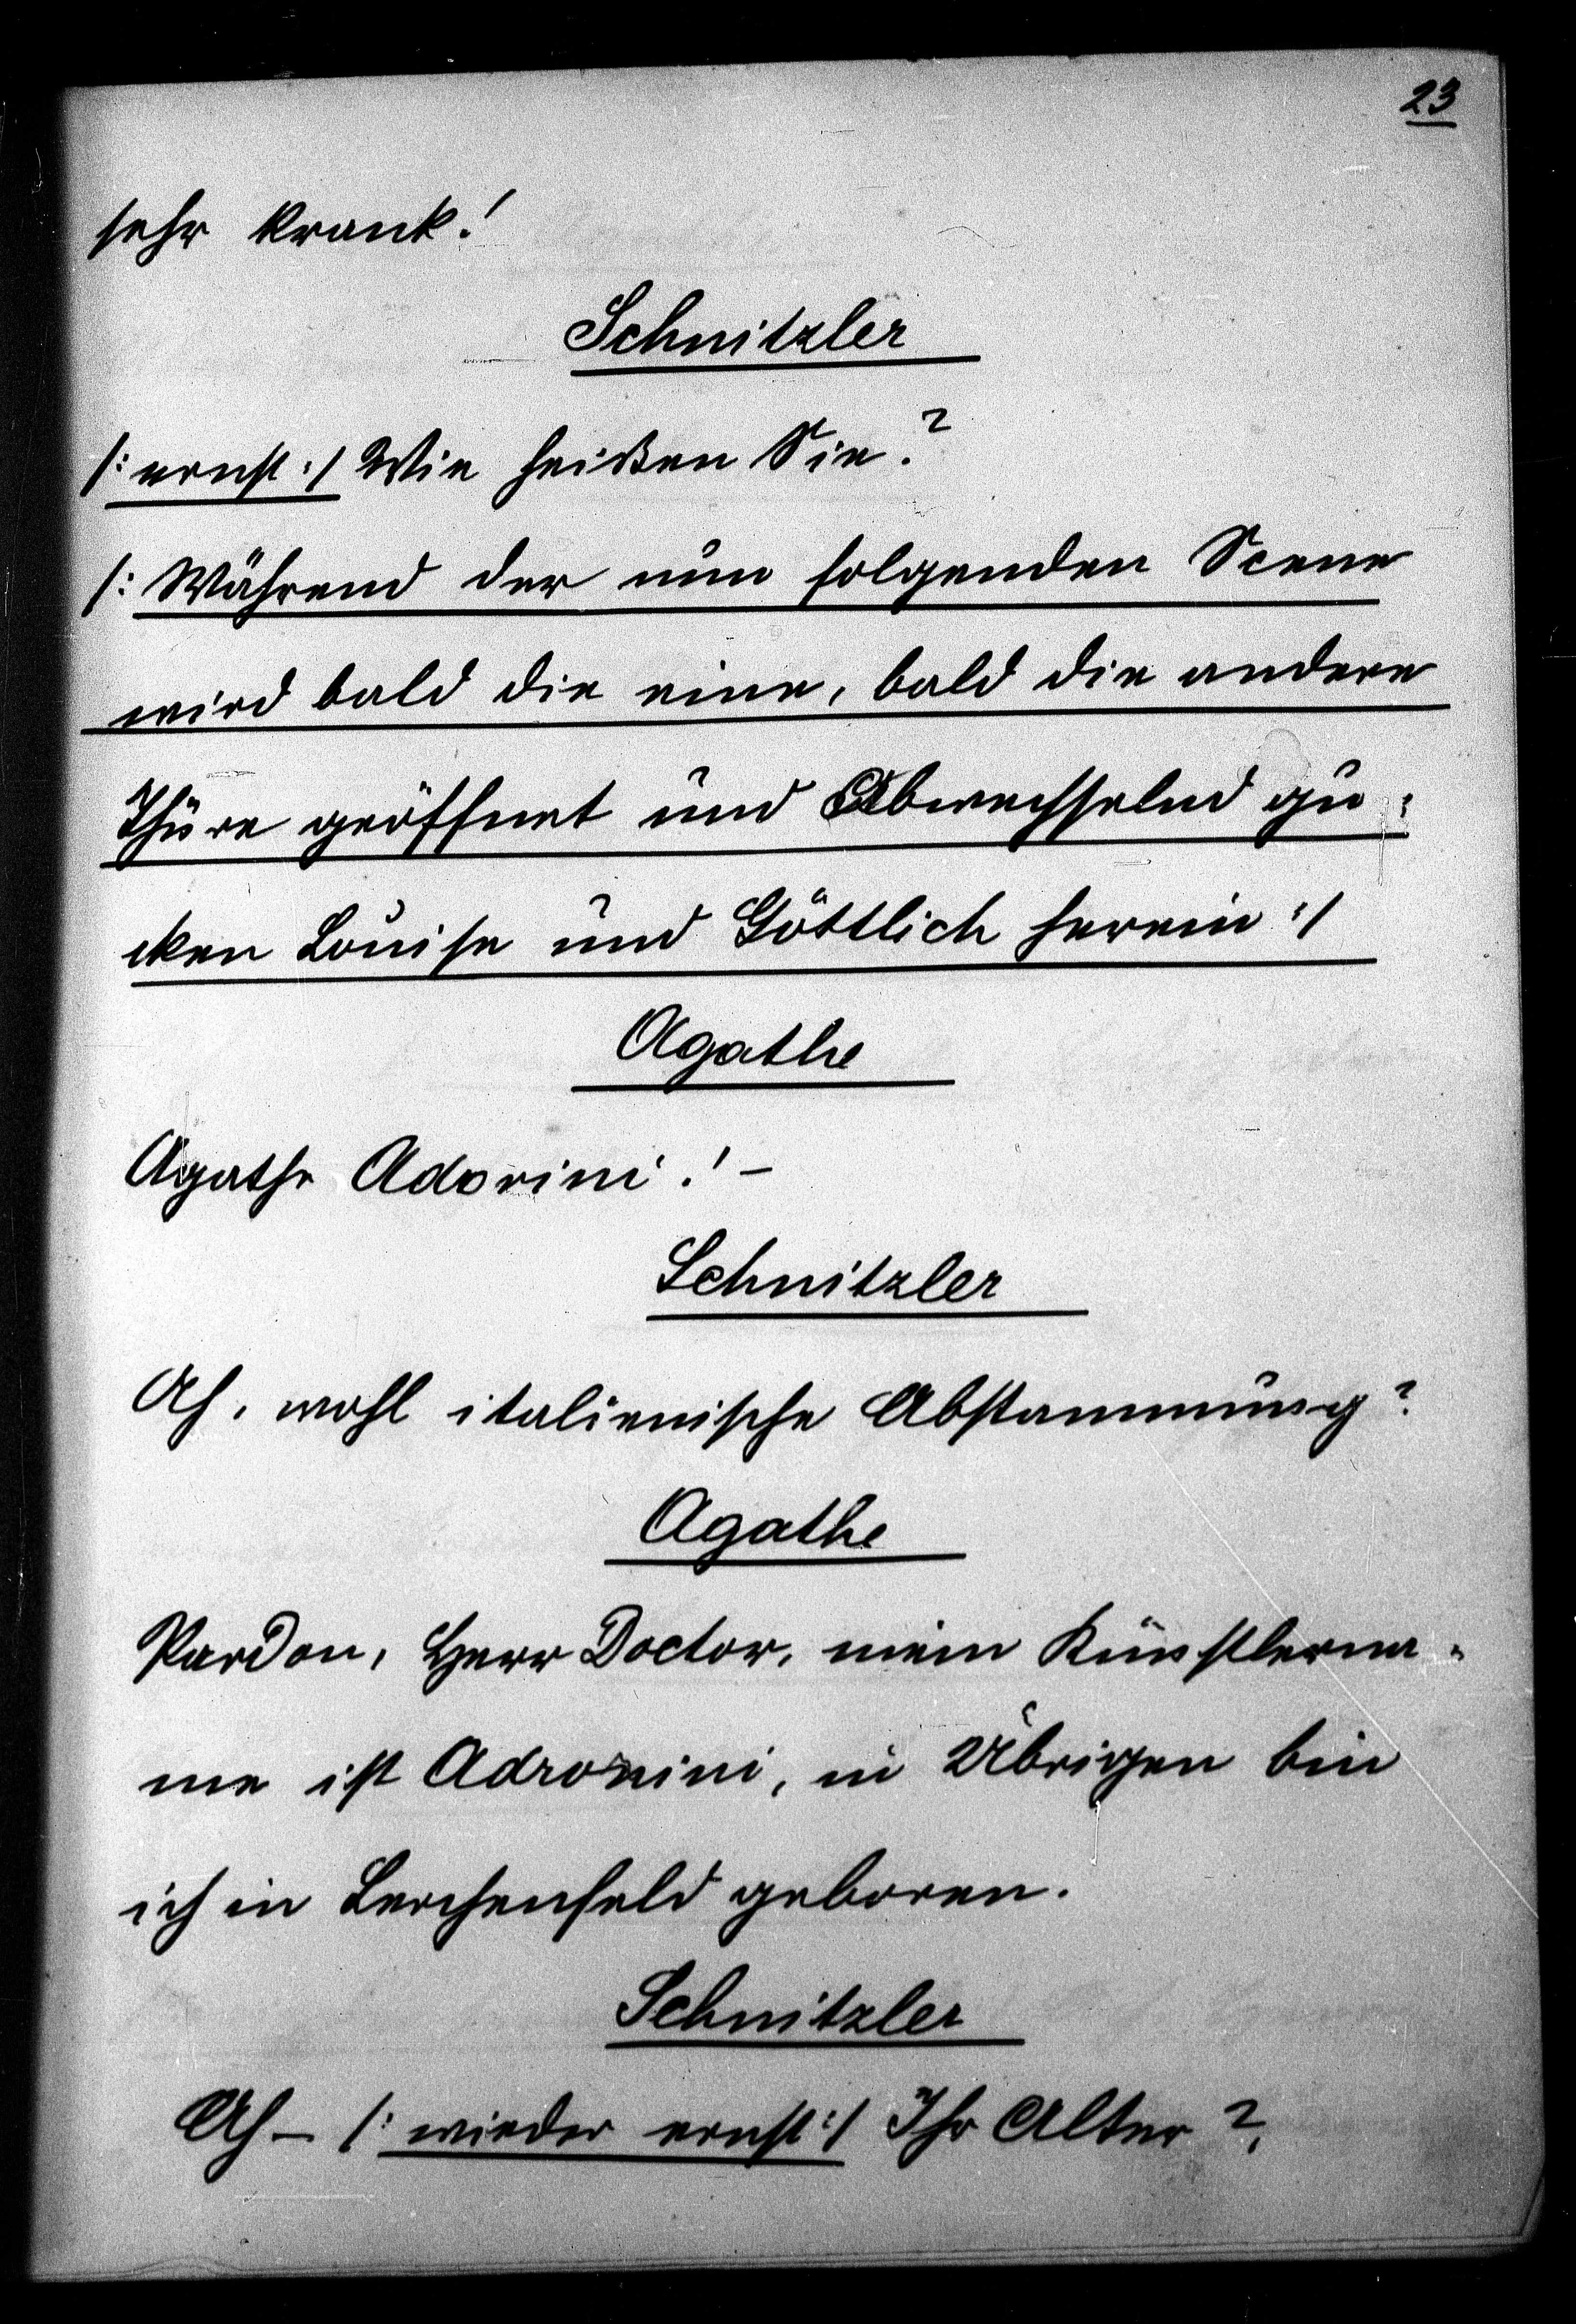 23
sehr krank!
Schnitzler
/: ernst :/ Wie heißen Sie?
/: Während der nun folgenden Scene
wird bald die eine, bald die andere
Thüre geöffnet und Abwechselnd gu-
cken Louise und Göttlich herein :/
Agathe
Agathe Adorini! –
Schnitzler
Ah, wohl italienische Abstammung?
Agathe
Pardon, Herr Doctor, mein Künstlerna-
me ist Adronini, im Übrigen bin
ich in Lerchenfeld geboren.
Schnitzler
Ah – /: wieder ernst :/ Ihr Alter?